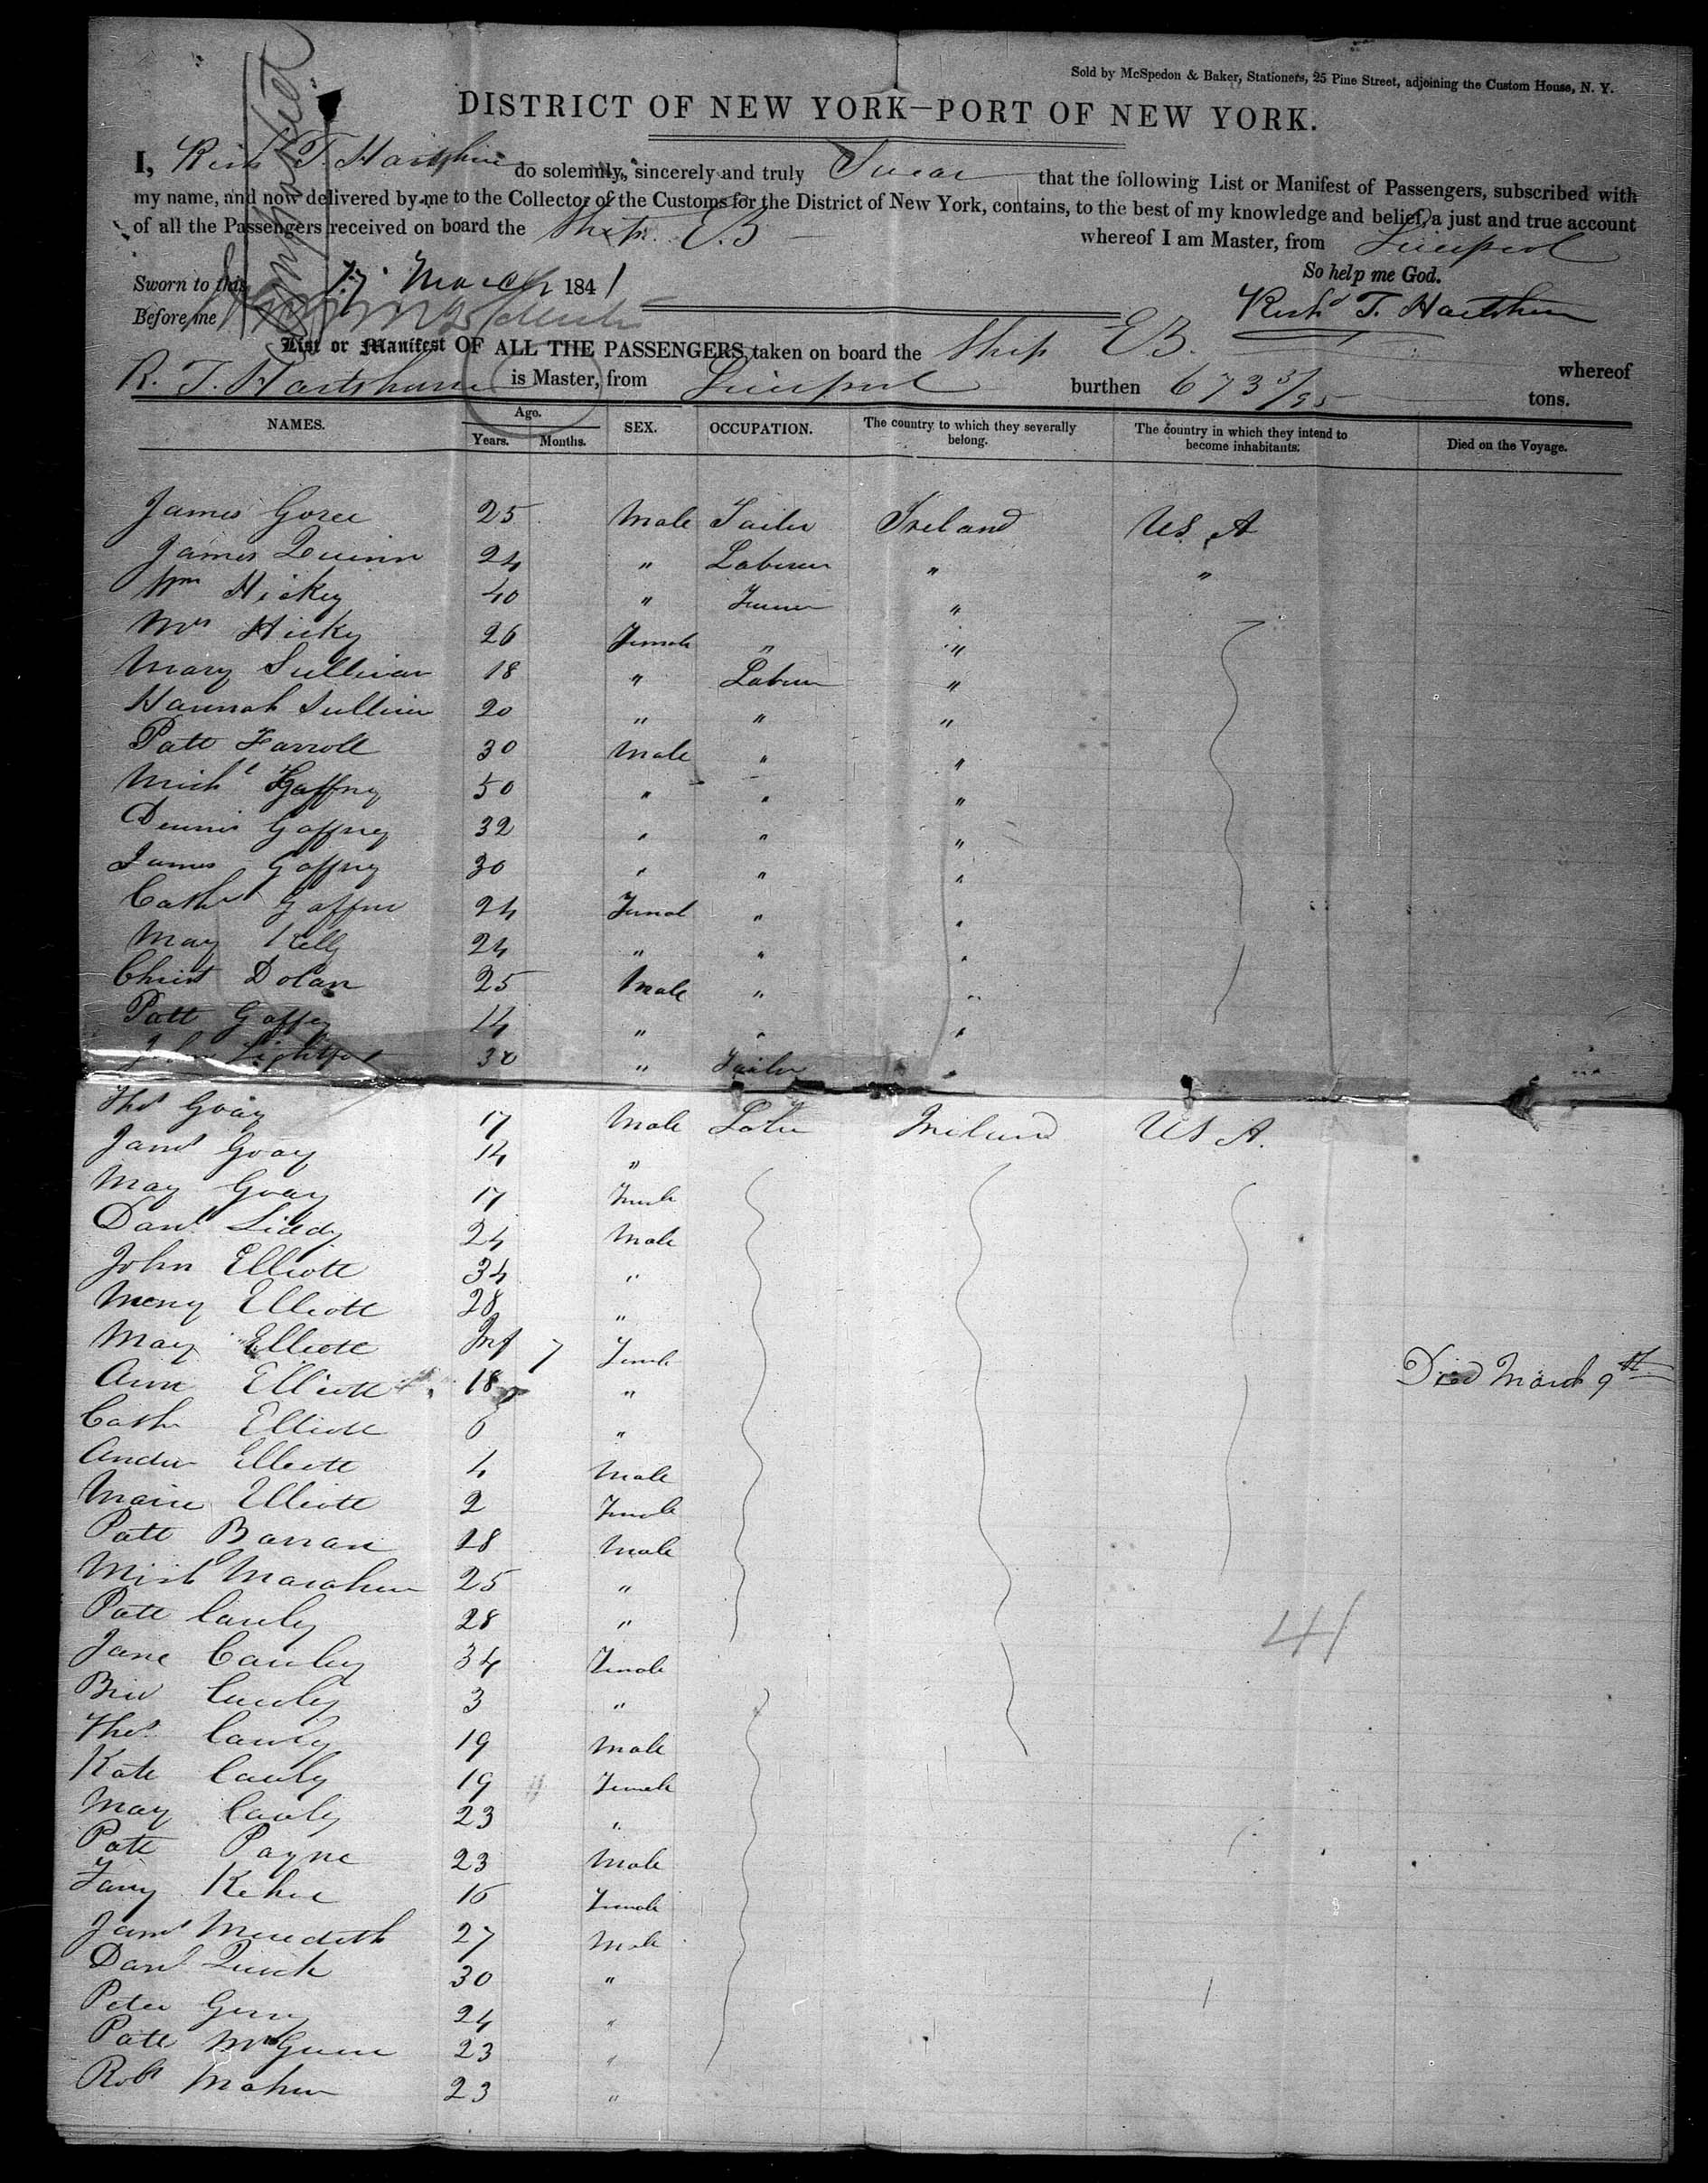 Sold by McSpedon & Baker, Stationers, 25 Pine Street, adjoining the Custom House, N. Y.
DISTRICT OF NEW YORK—PORT OF NEW YORK.
I, Rich T. Hartshorn do solemnly, sincerely and truly Swear that the following List or Manifest of Passengers, subscribed with
my name, and now delivered by me to the Collector of the Customs for the District of New York, contains, to the best of my knowledge and belief, a just and true account
of all the Passengers received on board the Ship E.B whereof I am Master, from Liverpool
So help me God.
Sworn to this 17 March 1841
Before me
Richd T. Hartshorn
List or Manifest OF ALL THE PASSENGERS taken on board the Ship E B. whereof
R. T. Hartshorn is Master, from Liverpool burthen 673 3/95 tons.
NAMES. Age. Years. Months. SEX. OCCUPATION. The country to which they severally belong. The country in which they intend to become inhabitants. Died on the Voyage.
James Goree 25 Male Tailor Ireland U.S. A
James Quinn 24 " Laborer " "
Wm Hickey 40 " Farmer "
Mrs Hicky 26 Female " "
Mary Sullivan 18 " Labourer "
Hannah Sullivan 20 " " "
Patt Farroll 30 Male " "
Michl Gaffney 50 " " "
Dennis Gaffney 32 " " "
James Gaffney 30 " " "
Cath Gaffne 24 Femal " "
May Kelly 24 " " "
Christ Dolan 25 Male " "
Patt Gaffey 14 " " "
John Lightfoot 30 " Tailor "
Thos Goay 17 Male Ireland U S A.
Jams Goay 14 "
May Goay 17 Female
Danl Liddy 24 Male
John Elliott 34 "
Elliott 28 "
May Elliott Inf 7 Female Died March 9th
Ann Elliott 18 "
Cath Elliott 6 "
Andw Elliott 4 Male
Elliott 2 Female
Patt Barran 28 Male
Michl 25 "
Patt Cauly 28 "
Jane Cauley 34 Female
Cauley 3 "
41
Thos Cauly 19 Male
Kate Cauly 19 Female
May Cauly 23 "
Patt Payne 23 Male
Fany Kehoe 16 Female
Jams Meredith 27 Male
Danl Quirk 30 "
Peter 24 "
Patt 23 "
Robt Maher 23 "